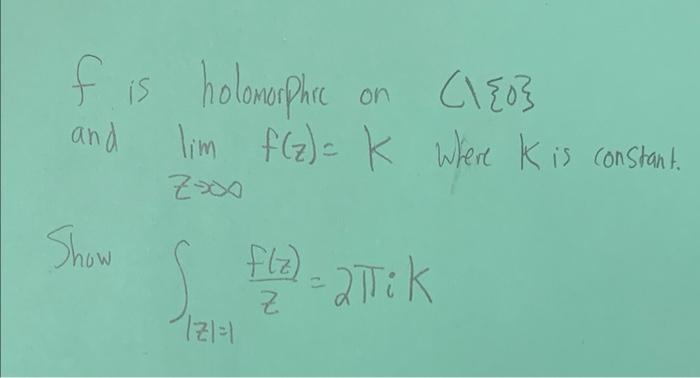 f is holomorphic on C\{0}
and lim f(z) = K where K is constant.
z→∞
Show ∫ f(z)/z = 2πi K
|z|=1